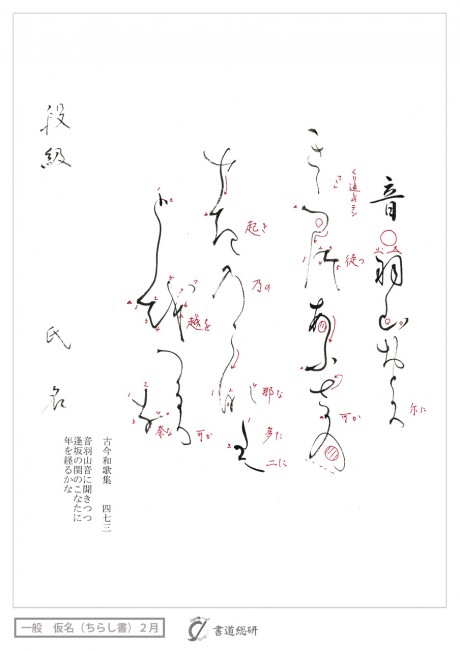 音羽山おと尓
きゝつ徒あふさ可の
せ起乃こ那
多二
とし越
ふる可奈
尓に
くり返しのテン
徒つ
可か
起き
乃の
那な
多た
二に
越を
可か
奈な
段級
氏名
古今和歌集 四七三
音羽山音に聞きつつ
逢坂の関のこなたに
年を経るかな
一般 仮名（ちらし書）２月
書道総研